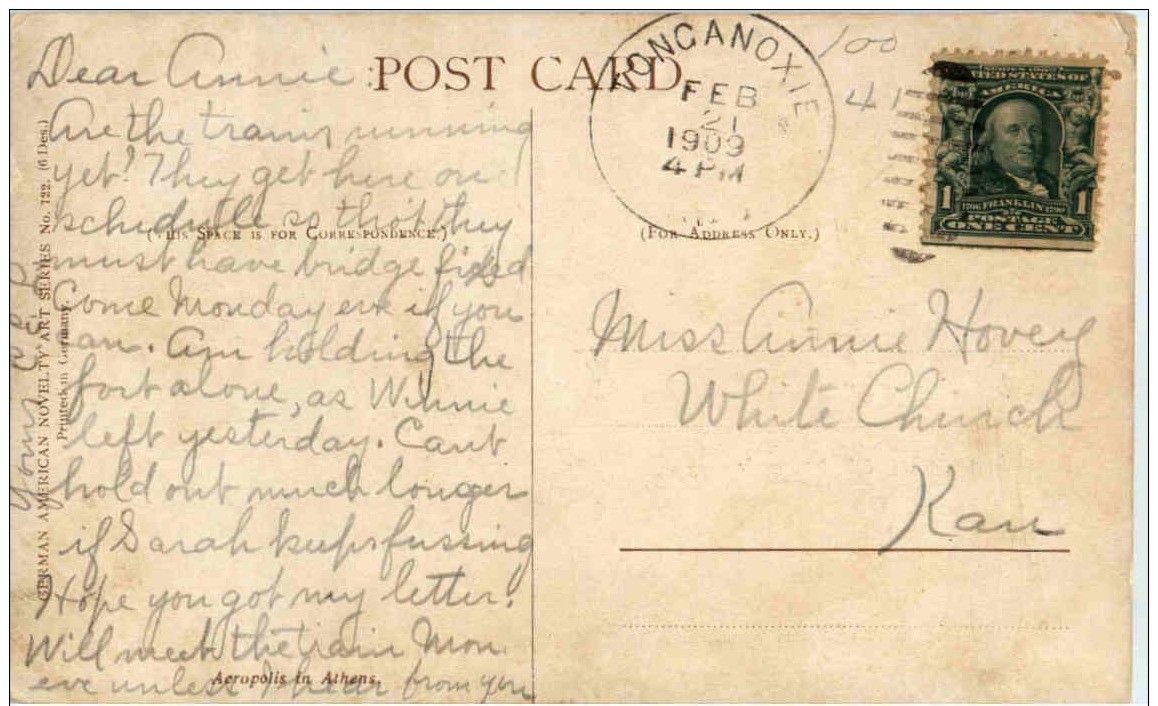 Dear Annie:
Are the trains running
yet? They get here on
schedule so that they
must have bridge fixed
Come Monday eve if you
can. Am holding the
fort alone, as Winnie
left yesterday. Can't
hold out much longer
if Sarah keeps fussing
Hope you got my letter.
Will meet the train Mon
eve unless I hear from you
Yours
POST CARD
(THIS SPACE IS FOR CORRESPONDENCE.)
(FOR ADDRESS ONLY.)
GERMAN AMERICAN NOVELTY ART SERIES No. 722. (6 Des.)
Printed in Germany.
Acropolis in Athens.
TONGANOXIE
FEB
21
1909
4 PM
100
41
UNITED STATES OF
AMERICA
1 FRANKLIN 1
POSTAGE
ONE CENT
Miss Annie Hovey
White Church
Kan